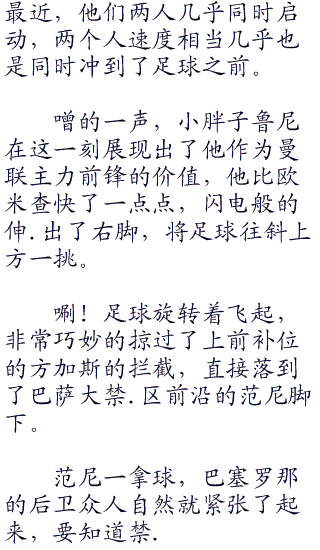 最近，他们两人几乎同时启
动，两个人速度相当几乎也
是同时冲到了足球之前。
噌的一声，小胖子鲁尼
在这一刻展现出了他作为曼
联主力前锋的价值，他比欧
米查快了一点点，闪电般的
伸.出了右脚，将足球往斜上
方一挑。
唰！足球旋转着飞起，
非常巧妙的掠过了上前补位
的方加斯的拦截，直接落到
了巴萨大禁.区前沿的范尼脚
下。
范尼一拿球，巴塞罗那
的后卫众人自然就紧张了起
来，要知道禁.